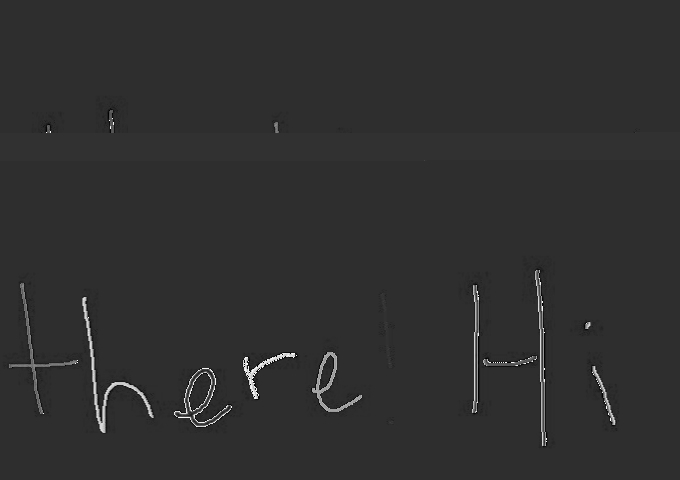 there! Hi